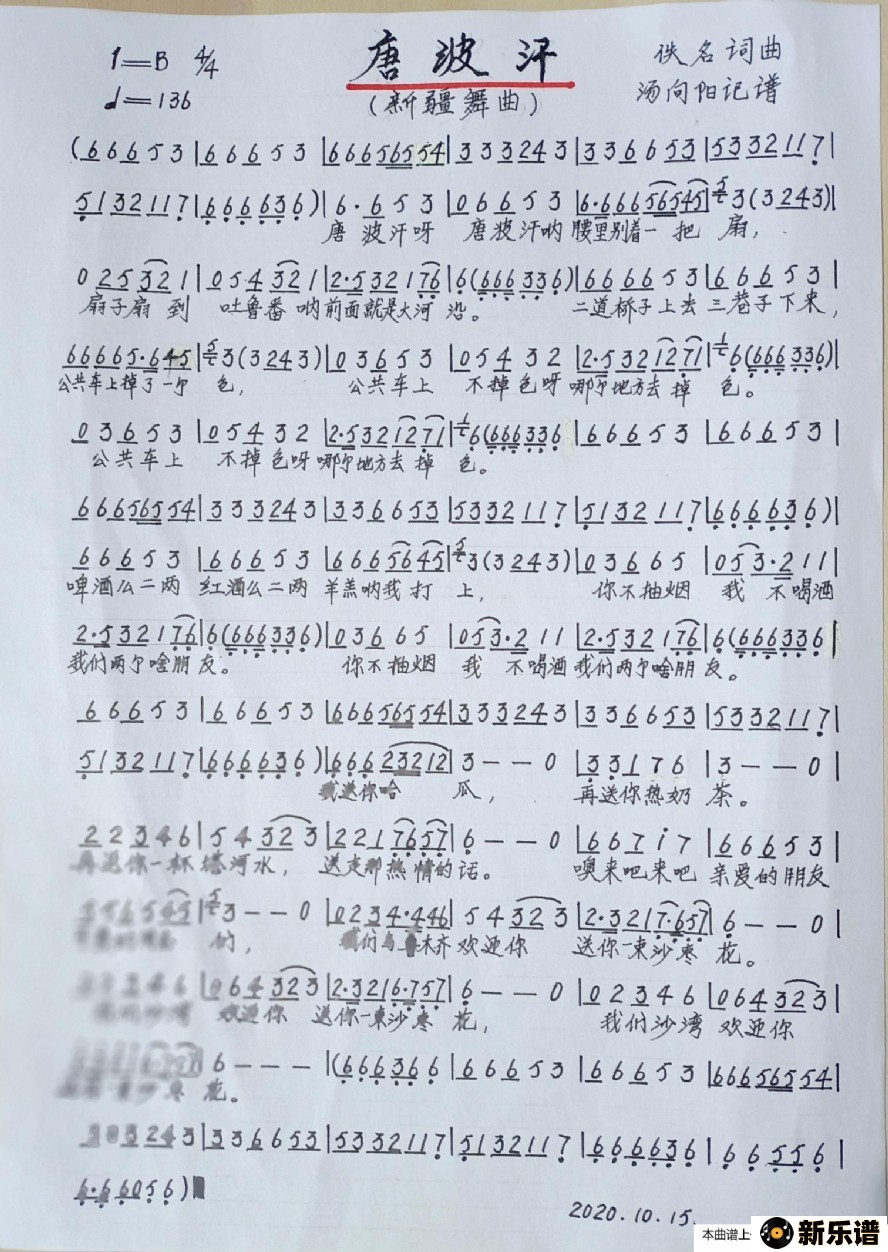 1=B 4/4
唐波汗
佚名词曲
♩=136
(新疆舞曲)
汤向阳记谱
(6 6 6 5 3 | 6 6 6 5 3 | 6 6 6 5 6 5 5 4 | 3 3 3 2 4 3 | 3 3 6 6 5 3 | 5 3 3 2 1 1 7 |
5 1 3 2 1 1 7 | 6 6 6 6 3 6) | 6· 6 5 3 | 0 6 6 5 3 | 6· 6 6 6 5 6 5 4 5 | 5 3 (3 2 4 3) |
唐波汗呀 唐波汗呐 腰里别着一把扇,
0 2 5 3 2 1 | 0 5 4 3 2 1 | 2· 5 3 2 1 7 6 | 6 (6 6 6 3 3 6) | 6 6 6 6 5 3 | 6 6 6 5 3 |
扇子扇到 吐鲁番呐 前面就是大河沿。 二道桥子上去 三巷子下来,
6 6 6 6 5· 6 4 5 | 5 3 (3 2 4 3) | 0 3 6 5 3 | 0 5 4 3 2 | 2· 5 3 2 1 2 7 1 | 1 6 (6 6 6 3 3 6) |
公共车上掉了一尕色, 公共车上 不掉色呀 哪尕地方去掉色。
0 3 6 5 3 | 0 5 4 3 2 | 2· 5 3 2 1 2 7 1 | 1 6 (6 6 6 3 3 6 | 6 6 6 5 3 | 6 6 6 5 3 |
公共车上 不掉色呀 哪尕地方去掉色。
6 6 6 5 6 5 5 4 | 3 3 3 2 4 3 | 3 3 6 6 5 3 | 5 3 3 2 1 1 7 | 5 1 3 2 1 1 7 | 6 6 6 6 3 6) |
6 6 6 5 3 | 6 6 6 5 3 | 6 6 6 5 6 4 5 | 5 3 (3 2 4 3) | 0 3 6 6 5 | 0 5 3· 2 1 1 |
啤酒么二两 红酒么二两 羊羔呐我打上, 你不抽烟 我不喝酒
2· 5 3 2 1 7 6 | 6 (6 6 6 3 3 6) | 0 3 6 6 5 | 0 5 3· 2 1 1 | 2· 5 3 2 1 7 6 | 6 (6 6 6 3 3 6 |
我们两尕啥朋友。 你不抽烟 我不喝酒 我们两尕啥朋友。
6 6 6 5 3 | 6 6 6 5 3 | 6 6 6 5 6 5 5 4 | 3 3 3 2 4 3 | 3 3 6 6 5 3 | 5 3 3 2 1 1 7 |
5 1 3 2 1 1 7 | 6 6 6 6 3 6) | 6 6 6 2 3 2 1 2 | 3 - - 0 | 3 3 1 7 6 | 3 - - 0 |
我送你哈瓜, 再送你热奶茶。
2 2 3 4 6 | 5 4 3 2 3 | 2 2 1 7 6 5 7 | 6 - - 0 | 6 6 7 i 7 | 6 6 6 5 3 |
再送你一杯塔河水, 送走那热情的话。 噢来吧来吧 亲爱的朋友
5 5 6 5 4 5 | 5 3 - - 0 | 0 2 3 4· 4 4 6 | 5 4 3 2 3 | 2· 3 2 1 7· 6 5 7 | 6 - - 0 |
们, 我们乌鲁木齐欢迎你 送你一束沙枣花。
4 6 | 0 6 4 3 2 3 | 2· 3 2 1 6· 7 5 7 | 6 - - 0 | 0 2 3 4 6 | 0 6 4 3 2 3 |
欢迎你 送你一束沙枣花, 我们沙湾 欢迎你
| 6 - - - | (6 6 6 3 6 6 | 6 6 6 5 3 | 6 6 6 5 3 | 6 6 6 5 6 5 5 4 |
沙枣花。
3 3 3 2 4 3 | 3 3 6 6 5 3 | 5 3 3 2 1 1 7 | 5 1 3 2 1 1 7 | 6 6 6 6 3 6 | 6 6 5 5 6 |
6· 6 6 0 5 6)
2020.10.15.
本曲谱上
新乐谱